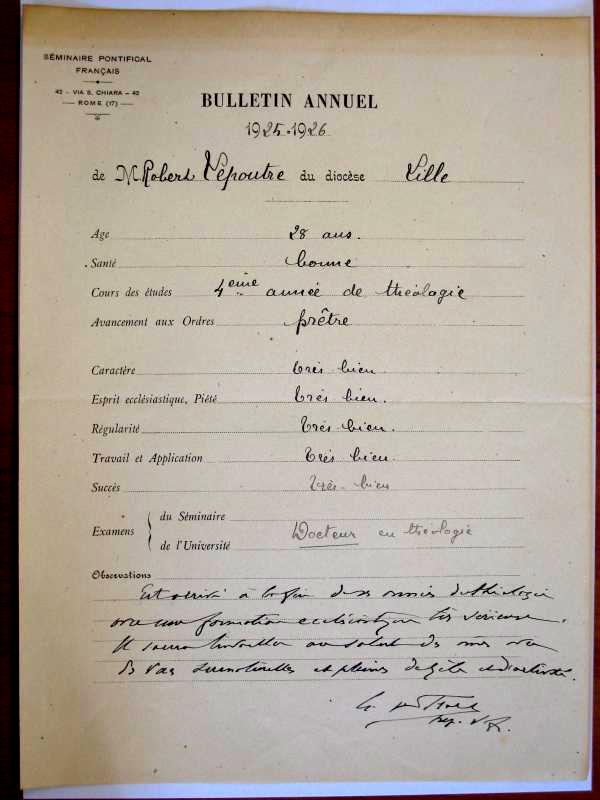 SÉMINAIRE PONTIFICAL
FRANÇAIS
42 - VIA S. CHIARA - 42
ROME (17)
BULLETIN ANNUEL
1925-1926
de M. Robert Lepoutre du diocèse Lille
Age 28 ans.
Santé bonne
Cours des études 4ème année de théologie
Avancement aux Ordres prêtre
Caractère très bien
Esprit ecclésiastique, Piété très bien.
Régularité très bien.
Travail et Application très bien.
Succès très bien
Examens
du Séminaire
de l'Université
Docteur en théologie
Observations
Est arrivé à la fin de ses années de théologie
avec une formation ecclésiastique très sérieuse.
Il saura travailler au salut des âmes avec
des vues surnaturelles et pleines de zèle et d'activité.